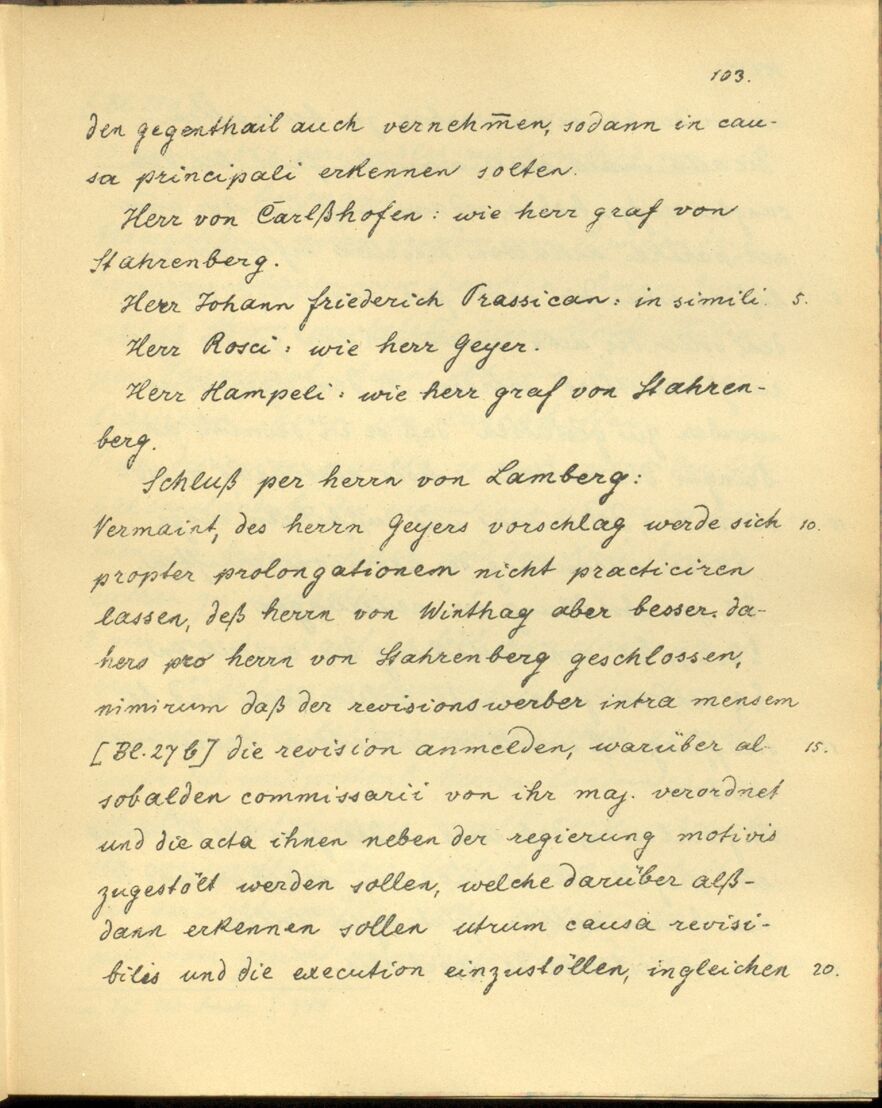 103.
den gegenthail auch vernehm̄en, sodann in cau-
sa principali erkennen solten.
Herr von Carlßhofen: wie herr graf von
Stahrenberg.
Herr Johann friederich Prassican: in simili. 5.
Herr Rosci: wie herr Geyer.
Herr Hampeli: wie herr graf von Stahren-
berg.
Schluß per herrn von Lamberg:
Vermaint, des herrn Geyers vorschlag werde sich 10.
propter prolongationem nicht practiciren
lassen, deß herrn von Winthag aber besser. da-
hero pro herrn von Stahrenberg geschlossen,
nimirum daß der revisionswerber intra mensem
[Bl. 27b] die revision anmelden, warüber al- 15.
sobalden commissarii von ihr maj. verordnet
und die acta ihnen neben der regierung motivis
zugestölt werden sollen, welche darüber alß-
dann erkennen sollen utrum causa revisi-
bilis und die execution einzustöllen, ingleichen 20.